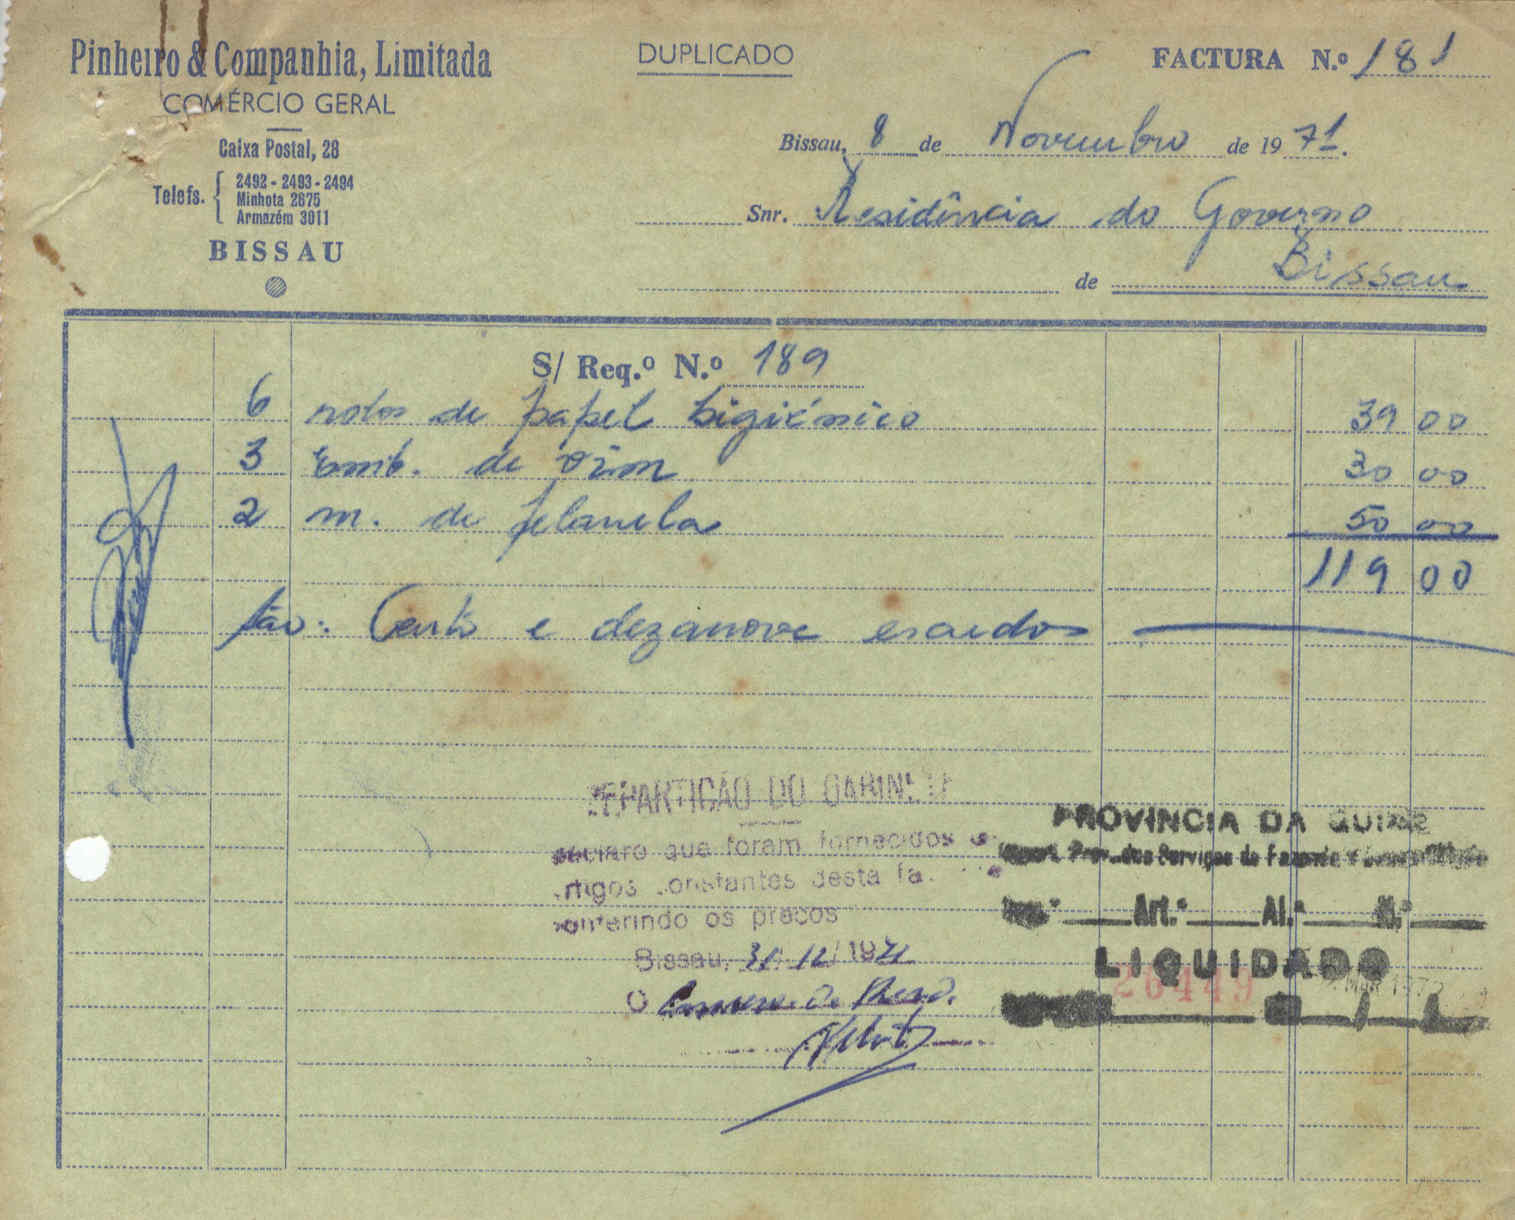 Pinheiro & Companhia, Limitada
COMÉRCIO GERAL
Caixa Postal, 28
Telefs. { 2492 - 2493 - 2494
Minhota 2675
Armazém 3011
BISSAU
DUPLICADO
FACTURA N.º 181
Bissau, 8 de Novembro de 1971.
Snr. Residência do Governo
de Bissau
S/ Req.º N.º 189
6 rolos de papel higiénico 39 00
3 Emb. de vim 30 00
2 m. de flanela 50 00
119 00
São: Cento e dezanove escudos
REPARTIÇÃO DO GABINETE
declaro que foram fornecidos os
artigos constantes desta fa
conferindo os preços
Bissau, 31/12/1971
O
PROVINCIA DA GUINÉ
Prov. dos Serviços de Fazenda
Art.º Al.ª N.º
LIQUIDADO
26449